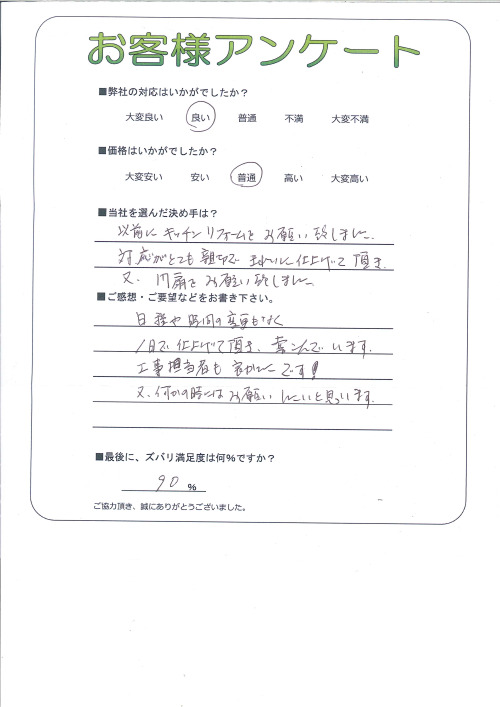 お客様アンケート
■弊社の対応はいかがでしたか?
大変良い 良い 普通 不満 大変不満
■価格はいかがでしたか?
大変安い 安い 普通 高い 大変高い
■当社を選んだ決め手は?
以前にキッチンリフォームをお願い致しました。
対応がとても親切できれいに仕上げて頂き
又、門扉をお願い致しました
■ご感想・ご要望などをお書き下さい。
日程や時間の変更もなく
1日で仕上げて頂き、喜こんでいます。
工事担当者も良かったです!
又、何かの時にはお願いしたいと思っています。
■最後に、ズバリ満足度は何%ですか?
90 %
ご協力頂き、誠にありがとうございました。